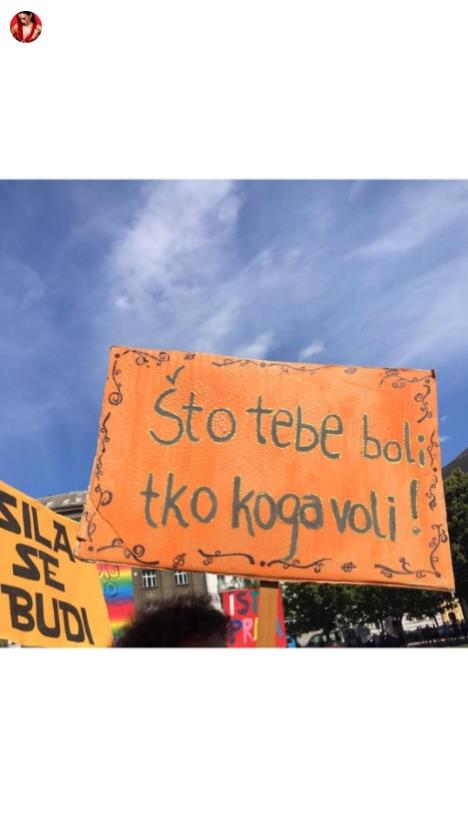 Što tebe boli
tko koga voli!
SILA
SE
BUDI